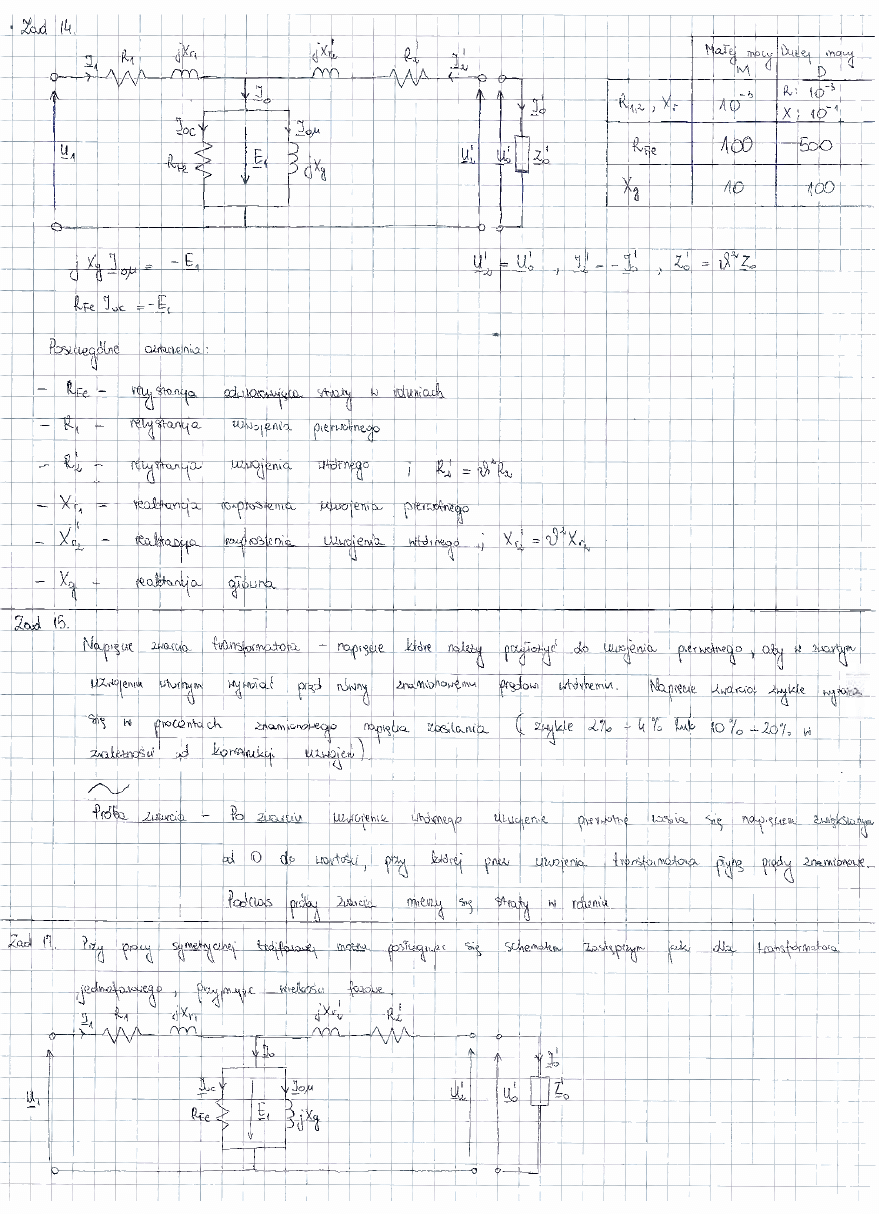 Zad 14.
I1 R1 jXr1 jXr2' R2' I2'
I0 I0'
Ioc Ioμ
U1 RFe E1 jXg U2' U0' Z0'
Małej mocy M Dużej mocy D
R1,2, Xr 10⁻³ R: 10⁻³ X: 10⁻¹
RFe 100 500
Xg 10 100
j Xg I0μ = -E1 U2' = U0' , I2' = -I0' , Z0' = ϑ²Z0
RFe Ioc = -E1
Poszczególne oznaczenia:
- RFe - rezystancja odzwierciedlająca straty w rdzeniach
- R1 - rezystancja uzwojenia pierwotnego
- R2' - rezystancja uzwojenia wtórnego ; R2' = ϑ²R2
- Xr1 - reaktancja rozproszenia uzwojenia pierwotnego
- Xr2' - reaktancja rozproszenia uzwojenia wtórnego ; Xr2' = ϑ²Xr2
- Xg - reaktancja główna
Zad 15.
Napięcie zwarcia transformatora - napięcie które należy przyłożyć do uzwojenia pierwotnego, aby w zwartym
uzwojeniu wtórnym wymusić prąd równy znamionowemu prądowi wtórnemu. Napięcie zwarcia zwykle wyraża
się w procentach znamionowego napięcia zasilania (zwykle 2% ÷ 4% lub 10% ÷ 20% w
zależności od konstrukcji uzwojeń)
Próba zwarcia - Po zwarciu uzwojenia wtórnego uzwojenie pierwotne zasila się napięciem zwiększanym
od 0 do wartości, przy której przez uzwojenia transformatora płyną prądy znamionowe.
Podczas próby zwarcia mierzy się straty w rdzeniu.
Zad 17. Przy pracy symetrycznej trójfazowej można posługiwać się schematem zastępczym jak dla transformatora
jednofazowego, przyjmując wielkości fazowe.
I1 R1 jXr1 jXr2' R2'
I0 I0'
Ioc Ioμ
U1 RFe E1 jXg U2' U0' Z0'